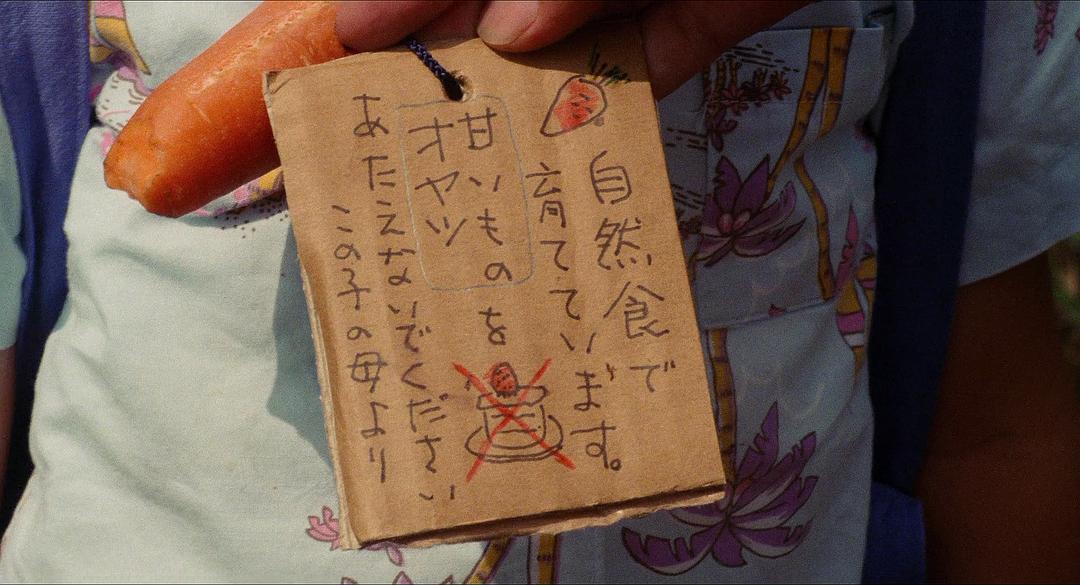 自然食で
育てています。
甘いもの
オヤツ
を
あたえないでください
この子の母より